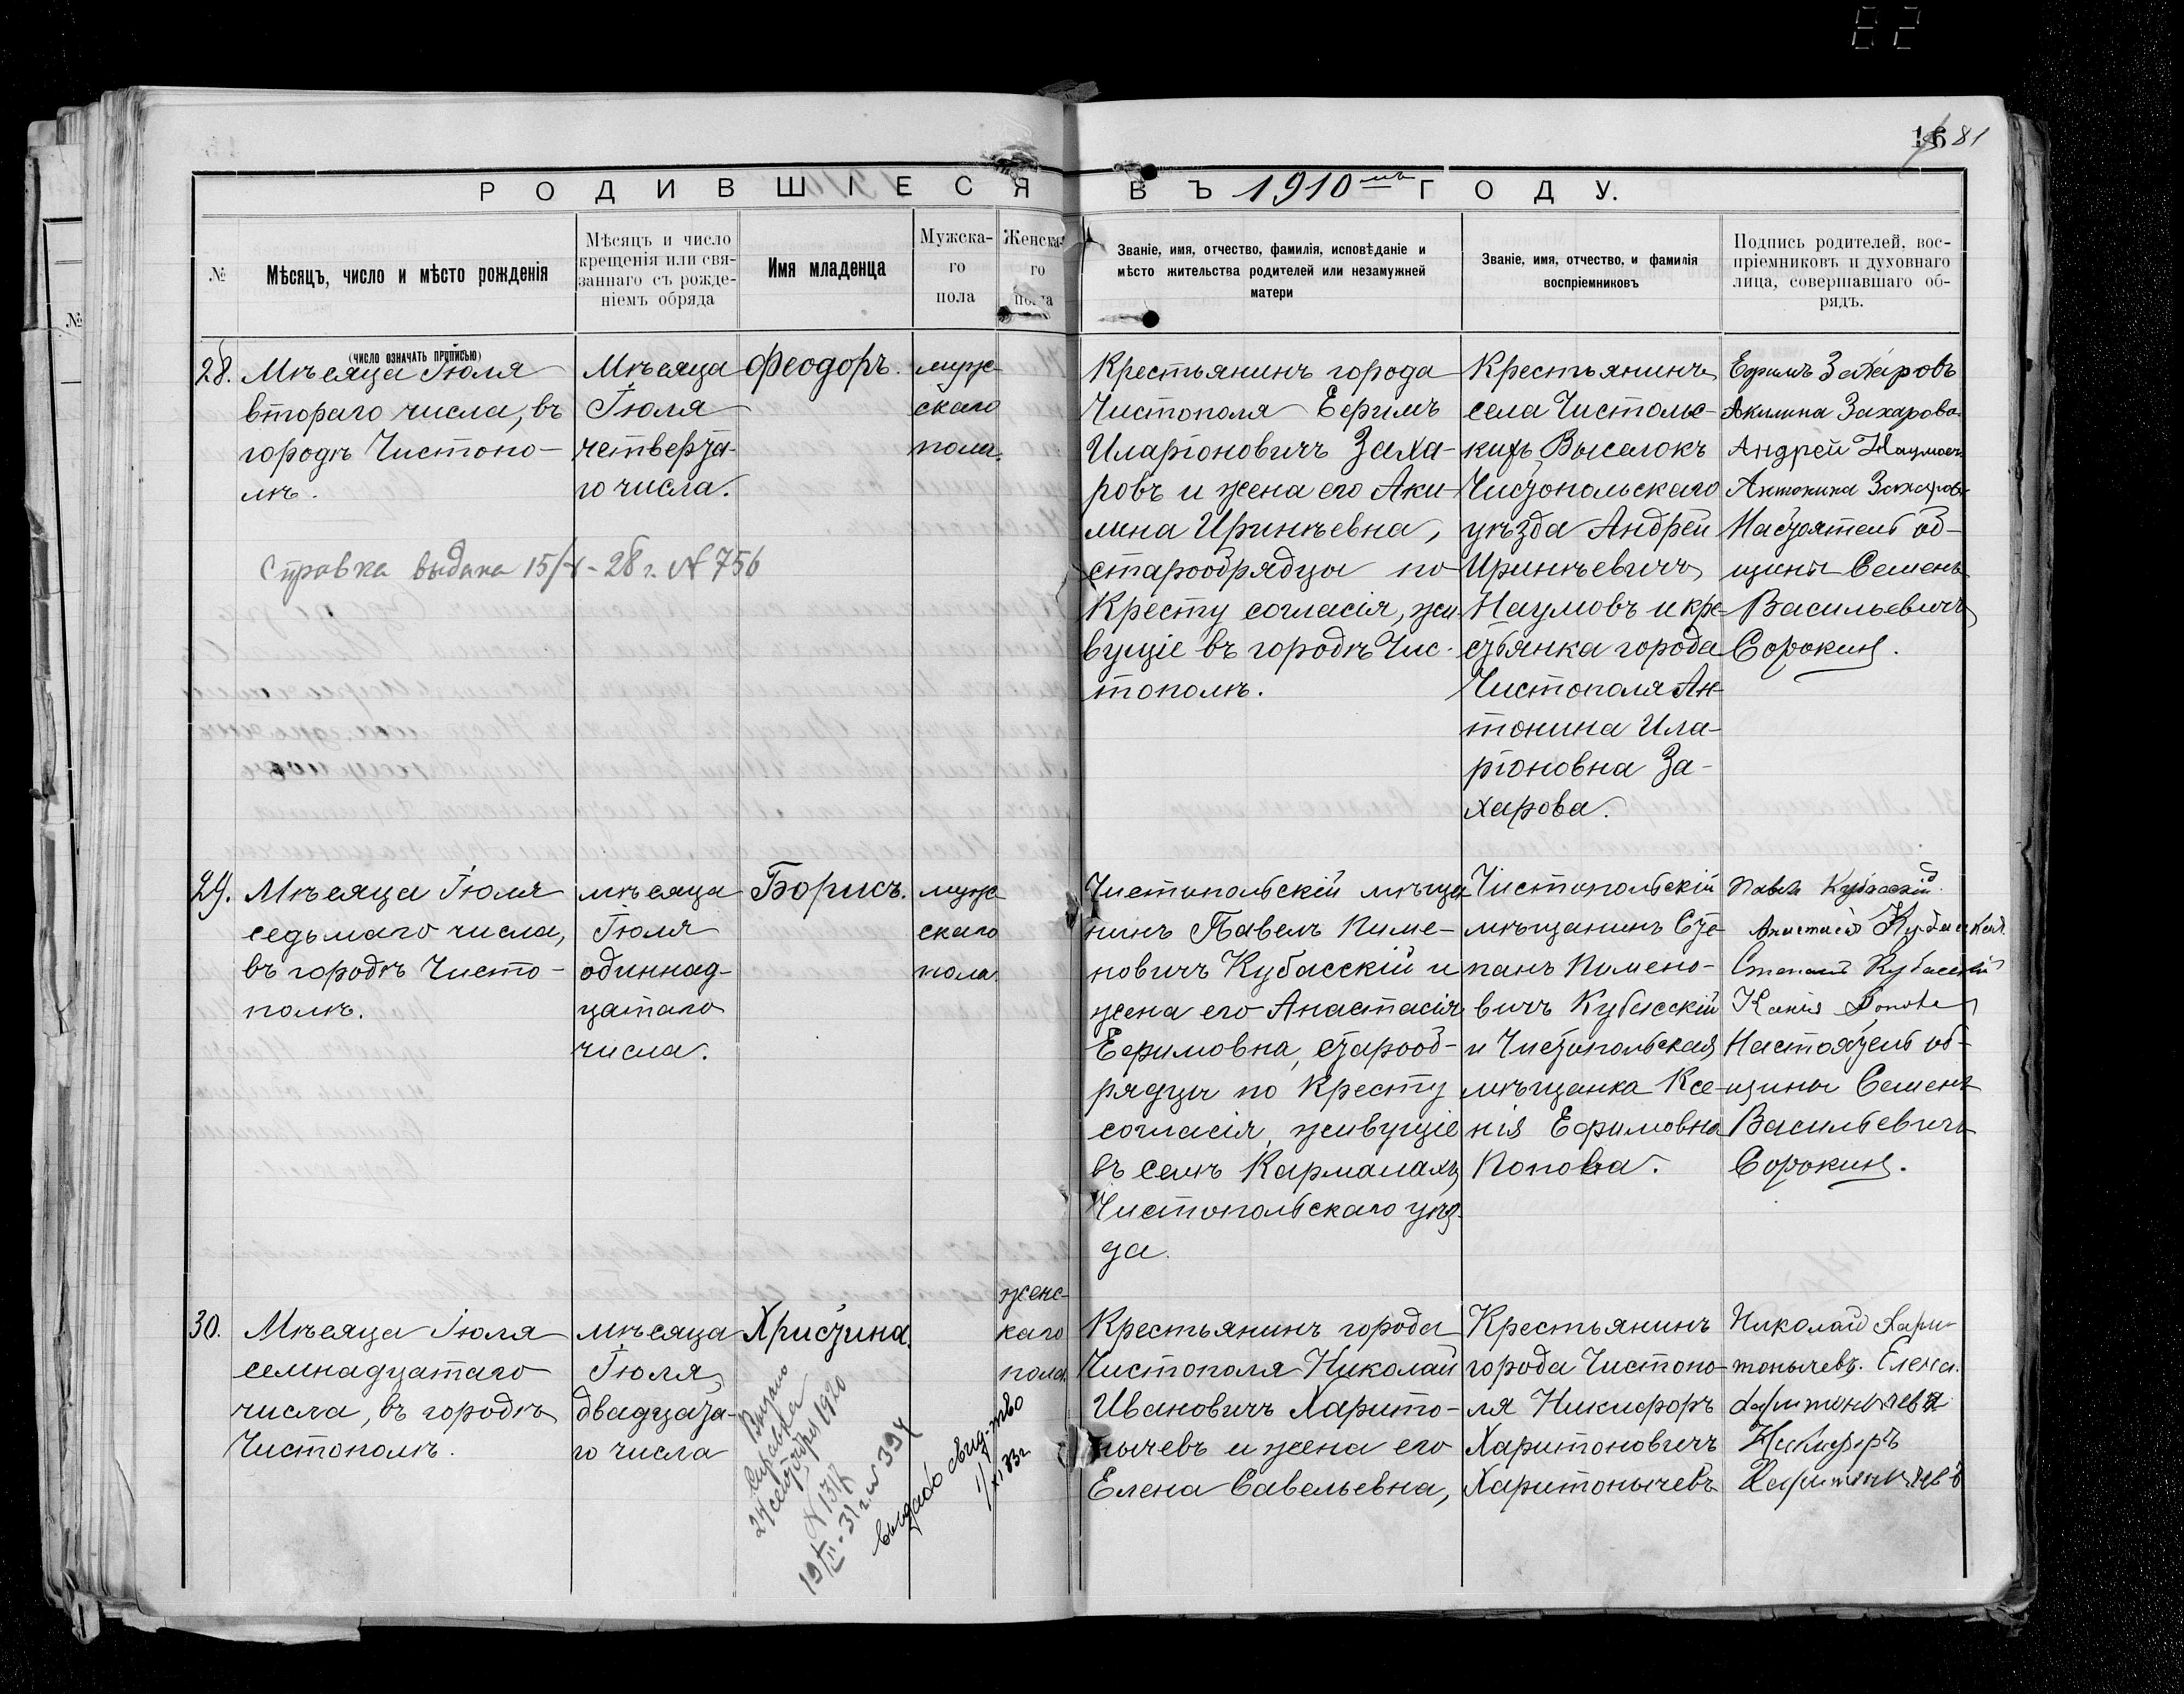 82
16 81
РОДИВШІЕСЯ ВЪ 1910мъ ГОДУ.
№
Мѣсяцъ, число и мѣсто рожденія
(число означать прописью)
Мѣсяцъ и число
крещенія или свя-
заннаго съ рожде-
ніемъ обряда
Имя младенца
Мужска-
го
пола
Женска-
го
пола
Званіе, имя, отчество, фамилія, исповѣданіе и
мѣсто жительства родителей или незамужней
матери
Званіе, имя, отчество, и фамилія
воспріемниковъ
Подпись родителей, вос-
пріемниковъ и духовнаго
лица, совершавшаго об-
рядъ.
№
28.
Мѣсяца Іюля
втораго числа, въ
городѣ Чистопо-
лѣ.
Справка выдана 15/X - 28 г. № 756
Мѣсяца
Іюля
четверта-
го числа.
Феодоръ.
муж-
скаго
пола.
Крестьянинъ города
Чистополя Ефимъ
Иларіоновичъ Заха-
ровъ и жена его Аки-
лина Иринѣевна,
старообрядцы по
Кресту согласія, жи-
вущіе въ городѣ Чис-
тополѣ.
Крестьянинъ
села Чистополь-
кихъ Выселокъ
Чистопольскаго
уѣзда Андрей
Иринѣевичъ
Наумовъ и кре-
стьянка города
Чистополя Ан-
тонина Ила-
ріоновна За-
харова.
Ефимъ Захаровъ
Акилина Захарова
Андрей Наумовъ
Антонина Захарова
Настоятель об-
щины Семенъ
Васильевичъ
Сорокинъ.
29.
Мѣсяца Іюля
седьмаго числа,
въ городѣ Чисто-
полѣ.
мѣсяца
Іюля
одиннад-
цатаго
числа.
Борисъ.
муж-
скаго
пола.
Чистопольскій мѣща-
нинъ Павелъ Пиме-
новичъ Кубасскій и
жена его Анастасія
Ефимовна, старооб-
рядцы по Кресту
согласія, живущіе
въ селѣ Кармалахъ
Чистопольскаго уѣз-
да.
Чистопольскій
мѣщанинъ Сте-
панъ Пимено-
вичъ Кубасскій
и Чистопольская
мѣщанка Ксе-
нія Ефимовна
Попова.
Павелъ Кубасскій
Анастасія Кубасская
Степанъ Кубасскій
Ксенія Попова
Настоятель об-
щины Семенъ
Васильевичъ
Сорокинъ.
30.
Мѣсяца Іюля
семнадцатаго
числа, въ городѣ
Чистополѣ.
мѣсяца
Іюля
двадцата-
го числа
Христина.
Выдана
справка
24 сентября 1920
№ 1317
19/II - 31 г. № 394
выдано свид-тво
1/XI 33 г.
женс-
каго
пола.
Крестьянинъ города
Чистополя Николай
Ивановичъ Харито-
нычевъ и жена его
Елена Савельевна,
Крестьянинъ
города Чистопо-
ля Никифоръ
Харитоновичъ
Харитонычевъ
Николай Хари-
тонычевъ. Елена
Харитонычева
Никифоръ
Харитонычевъ